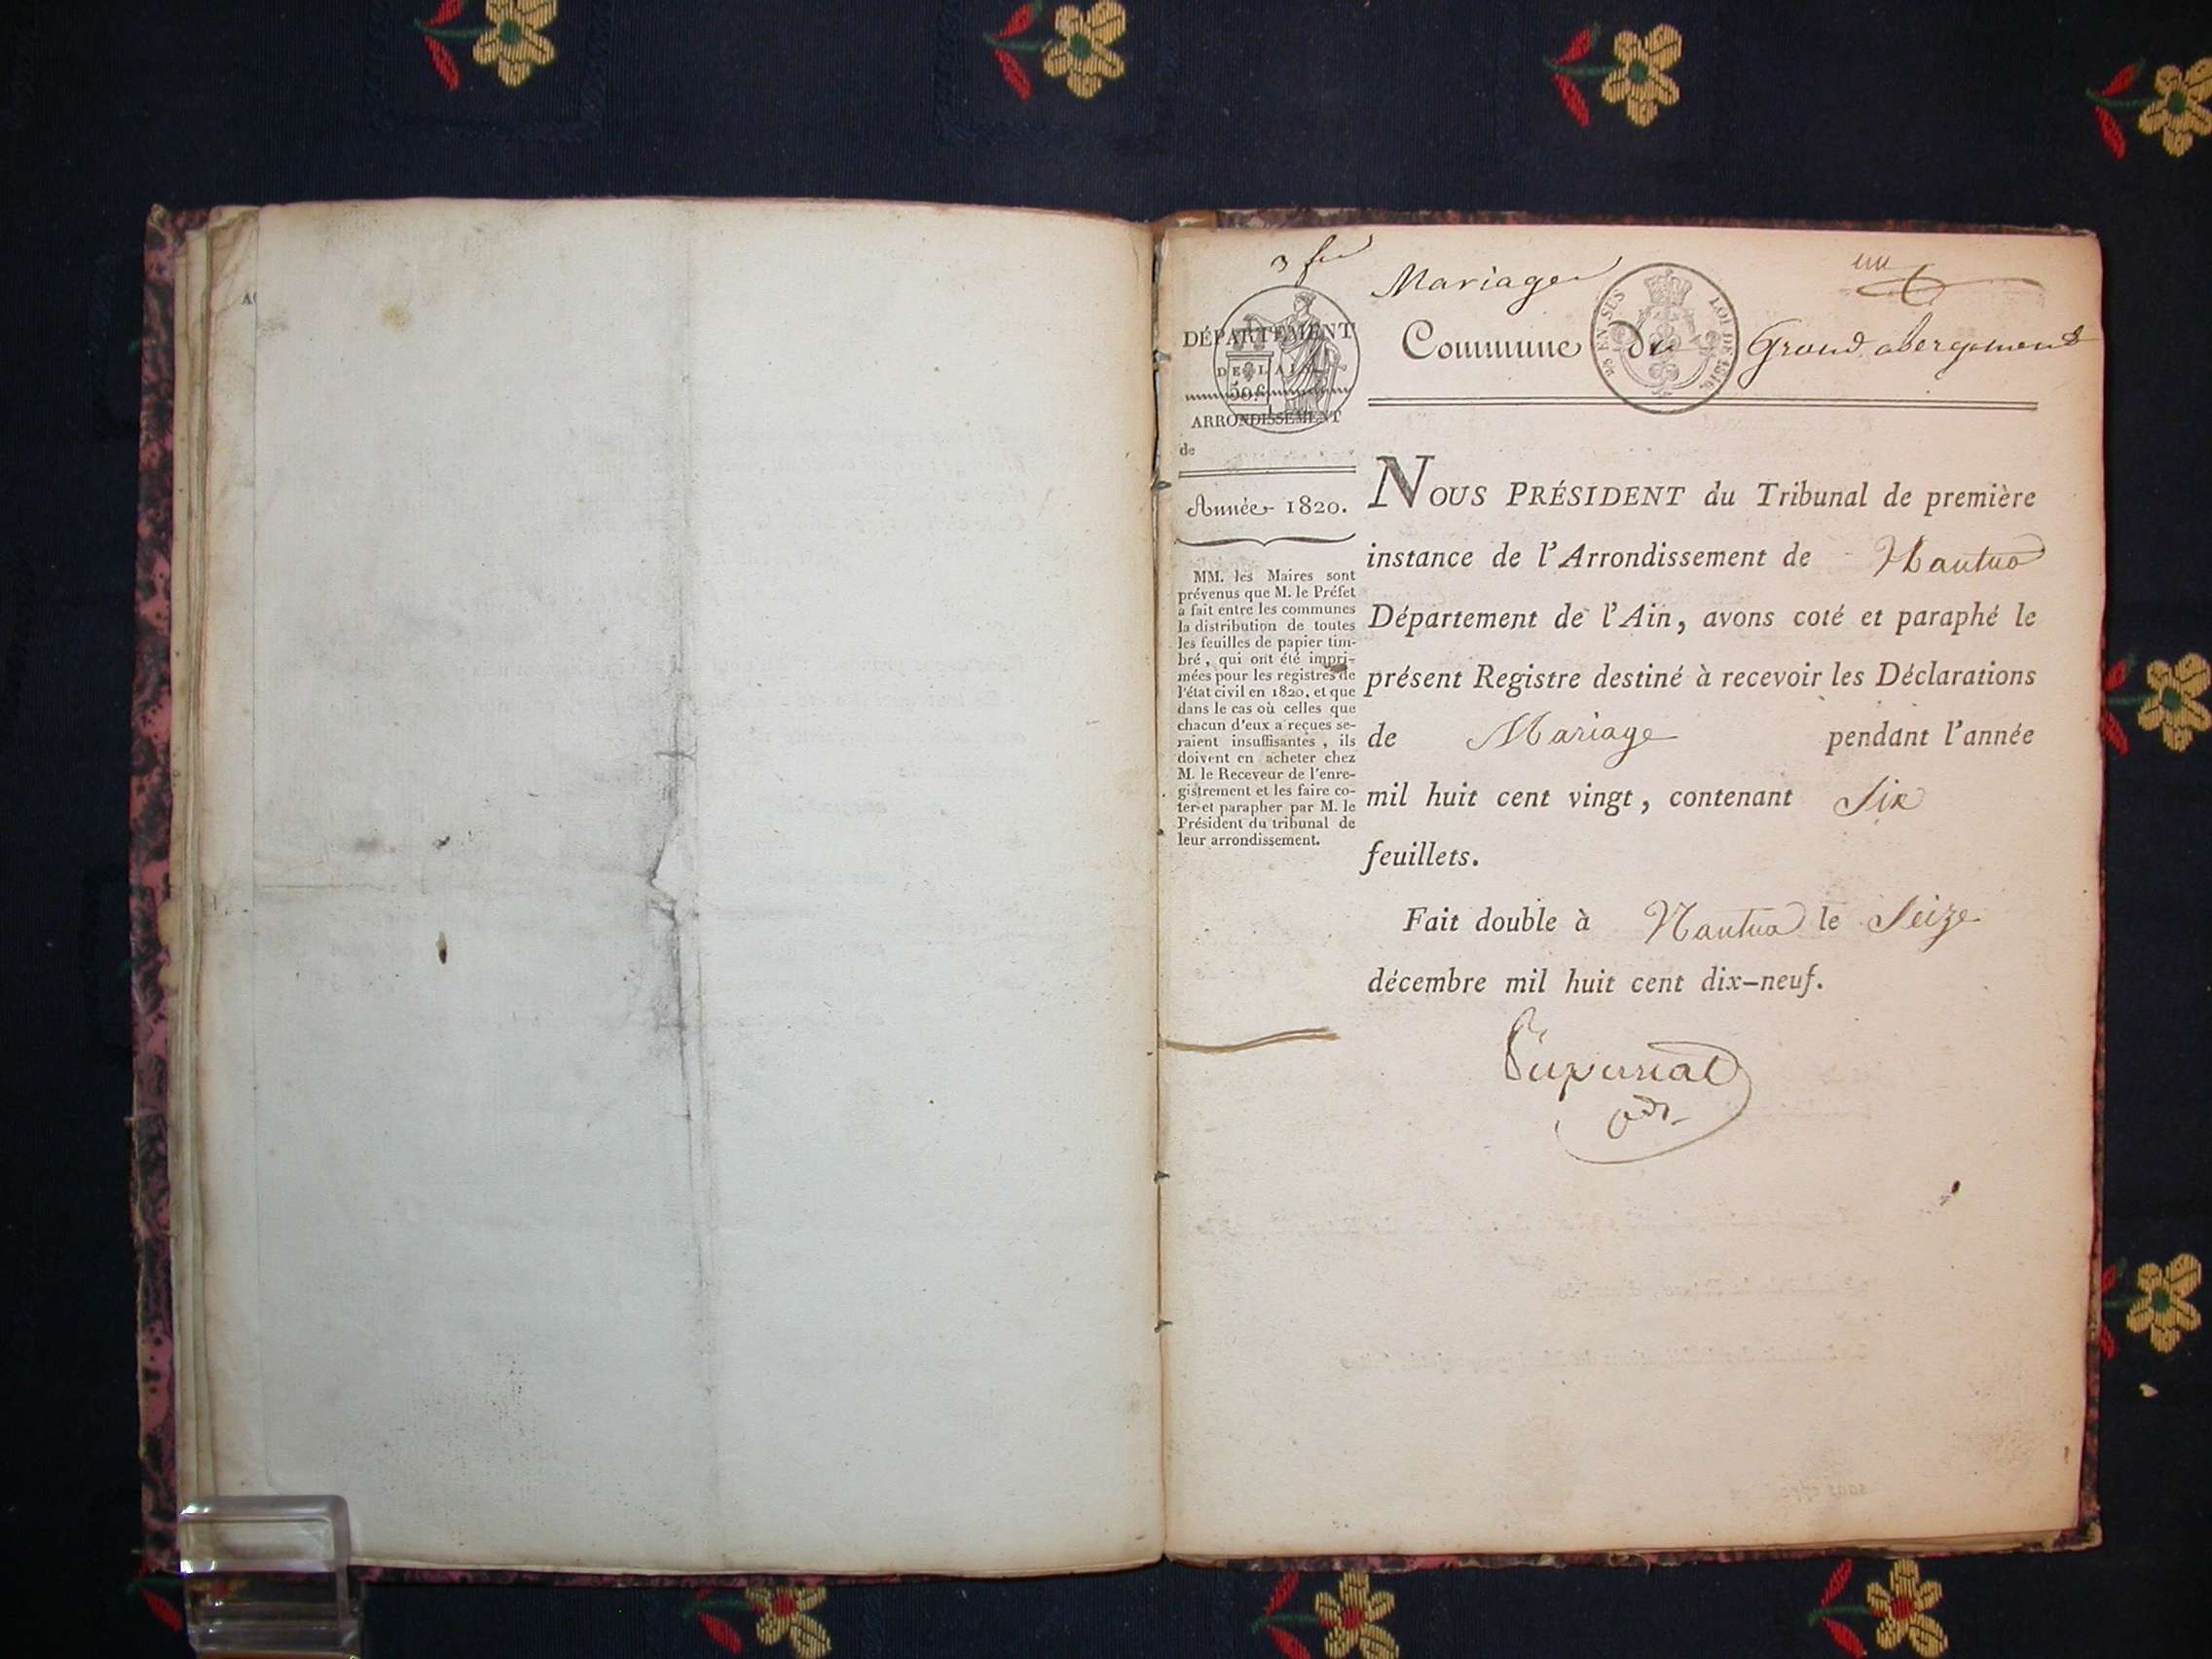 3 f
Mariage
un
DÉPARTEMENT
DE L'AIN
50 c
ARRONDISSEMENT
de
25 EN SUS
LOI DE 1816.
Commune du Grand abergement
Année 1820.
MM. les Maires sont
prévenus que M. le Préfet
a fait entre les communes
la distribution de toutes
les feuilles de papier tim-
bré, qui ont été impri-
mées pour les registres de
l'état civil en 1820, et que
dans le cas où celles que
chacun d'eux a reçues se-
raient insuffisantes, ils
doivent en acheter chez
M. le Receveur de l'enre-
gistrement et les faire co-
ter et parapher par M. le
Président du tribunal de
leur arrondissement.
NOUS PRÉSIDENT du Tribunal de première
instance de l'Arrondissement de Nantua
Département de l'Ain, avons coté et paraphé le
présent Registre destiné à recevoir les Déclarations
de Mariage pendant l'année
mil huit cent vingt, contenant Six
feuillets.
Fait double à Nantua le Seize
décembre mil huit cent dix-neuf.